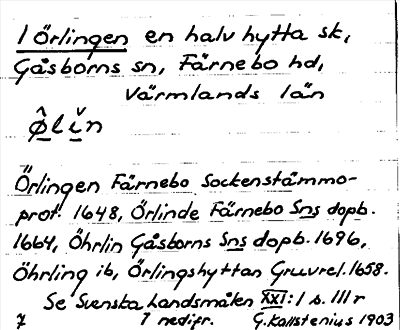 1 Örlingen en halv hytta sk,
Gåsborns sn, Färnebo hd,
Värmlands län
Øl i n
Örlingen Färnebo Sockenstämmo-
prot. 1648, Örlinde Färnebo Sns dopb.
1664, Öhrlin Gåsborns Sns dopb. 1696,
Öhrling ib, Örlingshyttan Gruvrel. 1658.
Se Svenska Landsmålen XXI: 1 s. 111 r
7 7 nedifr. G. Kallstenius 1903